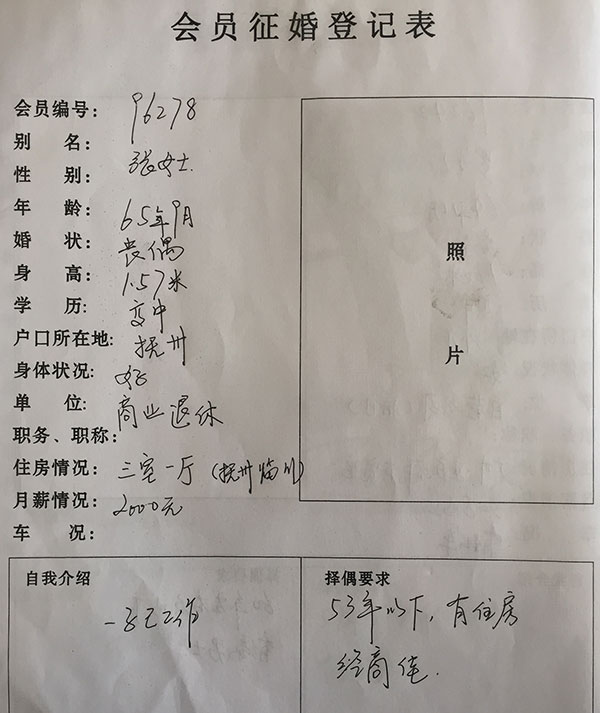 会员征婚登记表
会员编号: 96278
别 名: 张女士.
性 别:
年 龄: 65年9月
婚 状: 丧偶
身 高: 1.57米
学 历: 高中
户口所在地: 抚州
身体状况: 好
单 位: 商业退休
职务、职称:
住房情况: 三室一厅(抚州临川)
月薪情况: 2000元
车 况:
照
片
自我介绍
一子已工作
择偶要求
53年以下,有住房
经商佳.